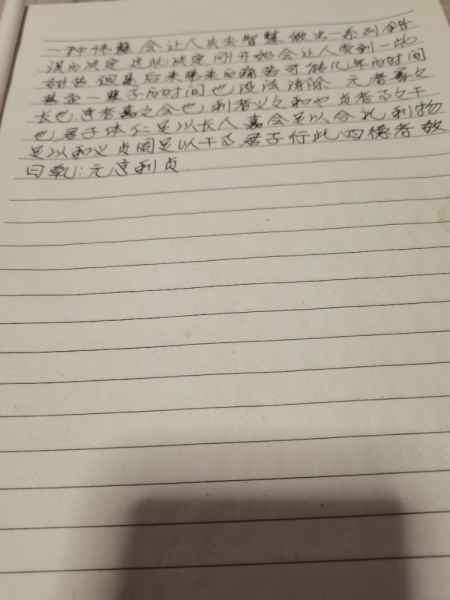 一种情慧会让人失去智慧做出一系列错
误的决定这些决定刚开始会让人尝到一些
甜甚但是后来带来的痛苦可能化几年的时间
甚至一辈子的时间也没法清除 元者善之
长也亨者嘉之会也利者义之和也贞者事之干
也君子体仁足以长人嘉会足以合礼利物
足以和义贞固足以干事君子行此四德者故
曰乾:元亨利贞